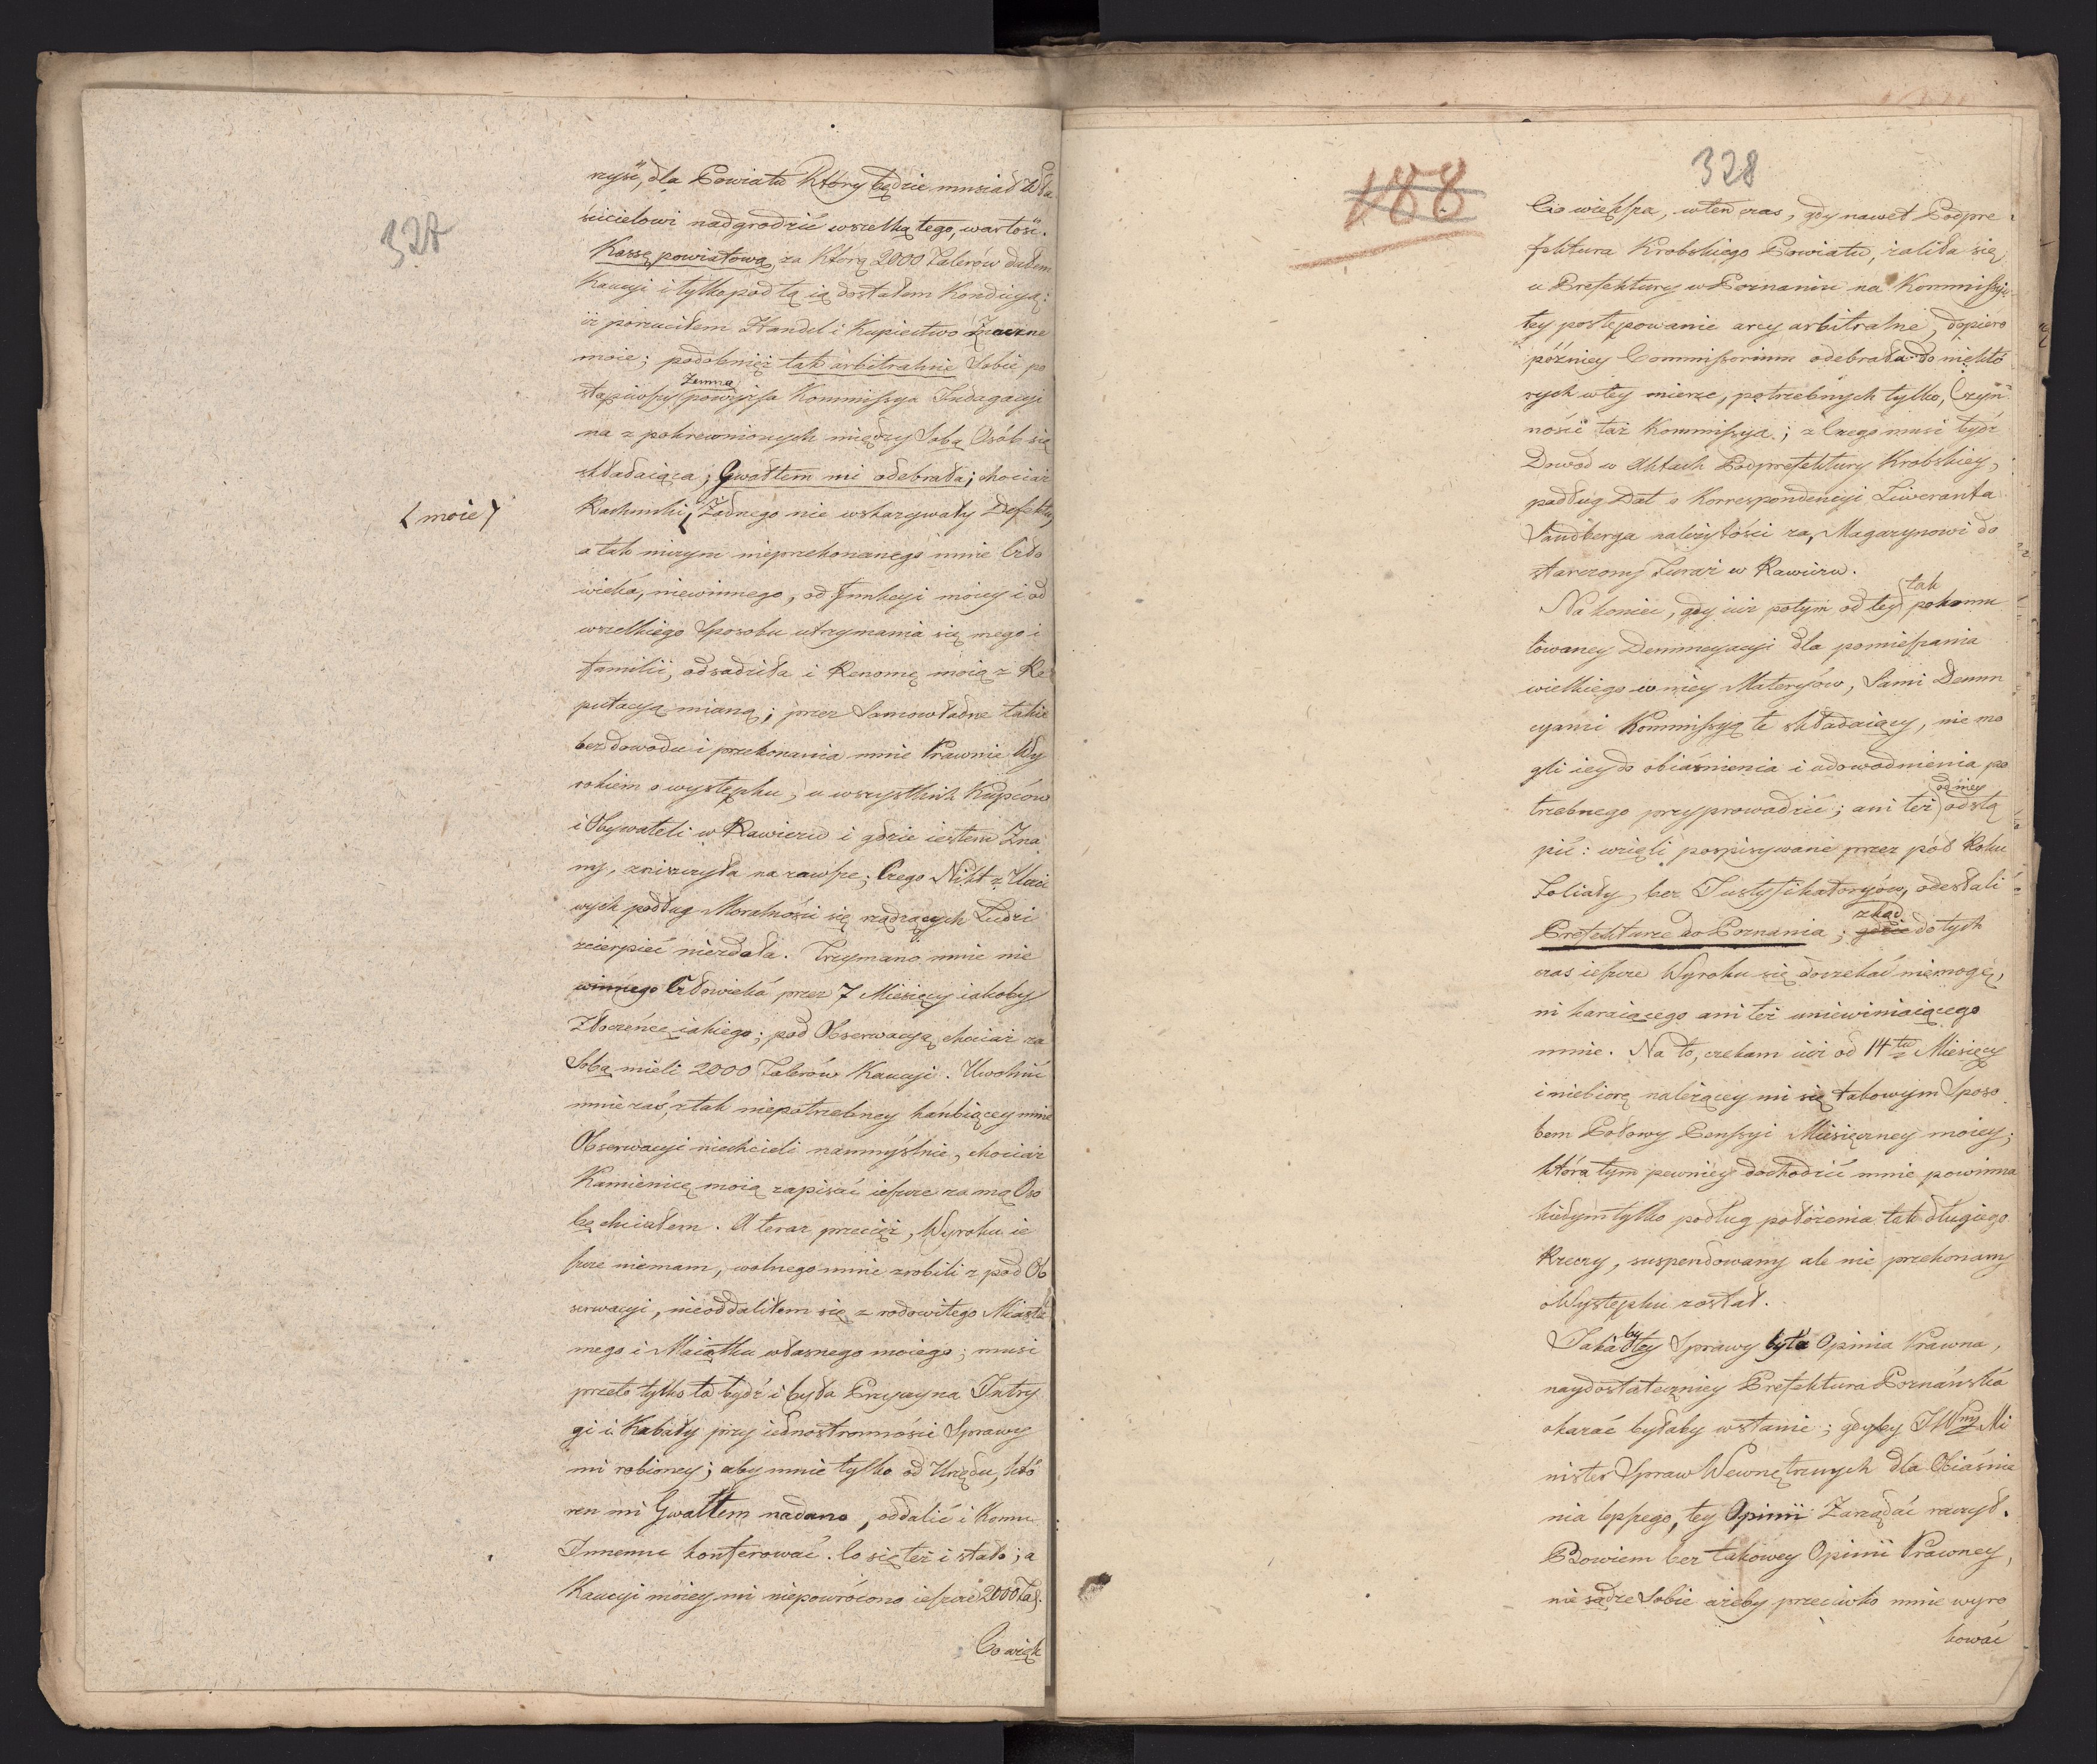 327
nyśi, dla Powiatu Który będzie musiał Wła
ścicielowi nadgrodzić wszelką tego, wartość.
Kassę powiatową, za Którą 2000 Talerów dałem
Kaucyi i tylko pod tą ią dostałem Kondycyą:
iż porzuciłem Handel i Kupiectwo Znaczne
moie; podobnież tak arbitralnie Sobie po
Zemną
stąpiwszy powyższa Kommissya Indagacyi
na z pokrewnionych między Sobą Osób się
składaiąca; Gwałtem mi odebrała; chociaż
(moie)
Rachunki Żadnego nie wskazywały Defektu,
a tak niczym nieprzekonanego mnie Czło
wieka, niewinnego, od Funkcyi moiey i od
wszelkiego Sposobu utrzymania się mego i
familii, odsadziła i Renomę moią z Re
putacyą mianą; przez Samowładne takie
bez dowodu i przekonania mnie Prawnie Wy
rokiem o występku, u wszystkich Kupców
i Obywateli w Rawiczu i gdzie iestem Zna
ny, zniszczyła na zawsze; Czego Nikt z Uczci
wych podług Moralności się rządzących Ludzi
ścierpieć niezdoła. Trzymano mnie nie
winnego Człowieka przez 7 Miesięcy iakoby
Złoczeńcę iakiego; pod Obserwacyą chociaż za
Sobą mieli 2000 Talerów Kaucyi. Uwolnić
mnie zaś, z tak niepotrzebney hańbiącey mnie
Obserwacyi niechcieli naumyślnie, chociaż
Kamienicę moią zapisać ieszcze za mą Oso
bę chciałem. A teraz przecież, Wyroku ie
szcze niemam, wolnego mnie zrobili z pod Ob
serwacyi, nieoddaliłem się z rodowitego Miasta
mego i Maiątku własnego moiego; musi
przeto tylko ta bydź i była Przyczyna Intry
gi i Kabały przy iednostronności Sprawy
mi robioney; aby mnie tylko od Urzędu, któ
ren mi Gwałtem nadano, oddalić i Komu
Innemu konferować. Co się też i stało; a
Kaucyi moiey mi niepowrócono ieszcze 2000 Tal.
Co więk
188
328
Co większa, wten czas, gdy nawet Podpre
fektura Krobskiego Powiatu, żaliła się,
u Prefektury w Poznaniu na Kommissyi
tey postępowanie arcy arbitralne, dopiero
późniey Commissorium odebrała do niektó
rych wtey mierze, potrzebnych tylko, Czyn
ności taż Kommissya; z Czego musi bydź
Dowód w Aktach Podprefektury Krobskiey,
podług Dat o Korrespondencyi Liweranta
Sandberga należytości za, Magazynowi do
starczony Furaż w Rawiczu.
tak
Na koniec, gdy iuż potym od tey pokomu
towaney Denuncyacyi dla pomieszania
wielkiego w niey Materyów, Sami Denun
cyanci Kommissyą te składaiący, nie mo
gli iey do obiaśnienia i udowodnienia po
od niey
trzebnego przyprowadzić; ani też odstą
pić: wzięli pospisywane przez pół Roku
Foliały, bez Justyfikatoryów, odesłali
zkąd
Prefekturze do Poznania; gdzie do tych
czas ieszcze Wyroku się doczekać niemogę,
ni karaiącego ani też uniewinniaiącego
mnie. Na to, czekam iuż od 14tu Miesięcy
i niebiorę należącey mi się takowym Sposo
bem Połowy Penssyi Miesięczney moiey;
która tym pewniey dochodzić mnie powinna
kiedym tylko podług położenia tak długiego
Rzeczy, suspendowany ale nie przekonany
o Występku został.
by
Jaka tey Sprawy była Opinia Prawna,
naydostateczniey Prefektura Poznańska
okazać byłaby wstanie; gdyby JWny Mi
nister Spraw Wewnętrznych dla Obiaśnie
nia lepszego, tey Opinii Zarządać raczył.
Bowiem bez takowey Opinii Prawney,
nie sądze Sobie ażeby przeciwko mnie wyro
kować